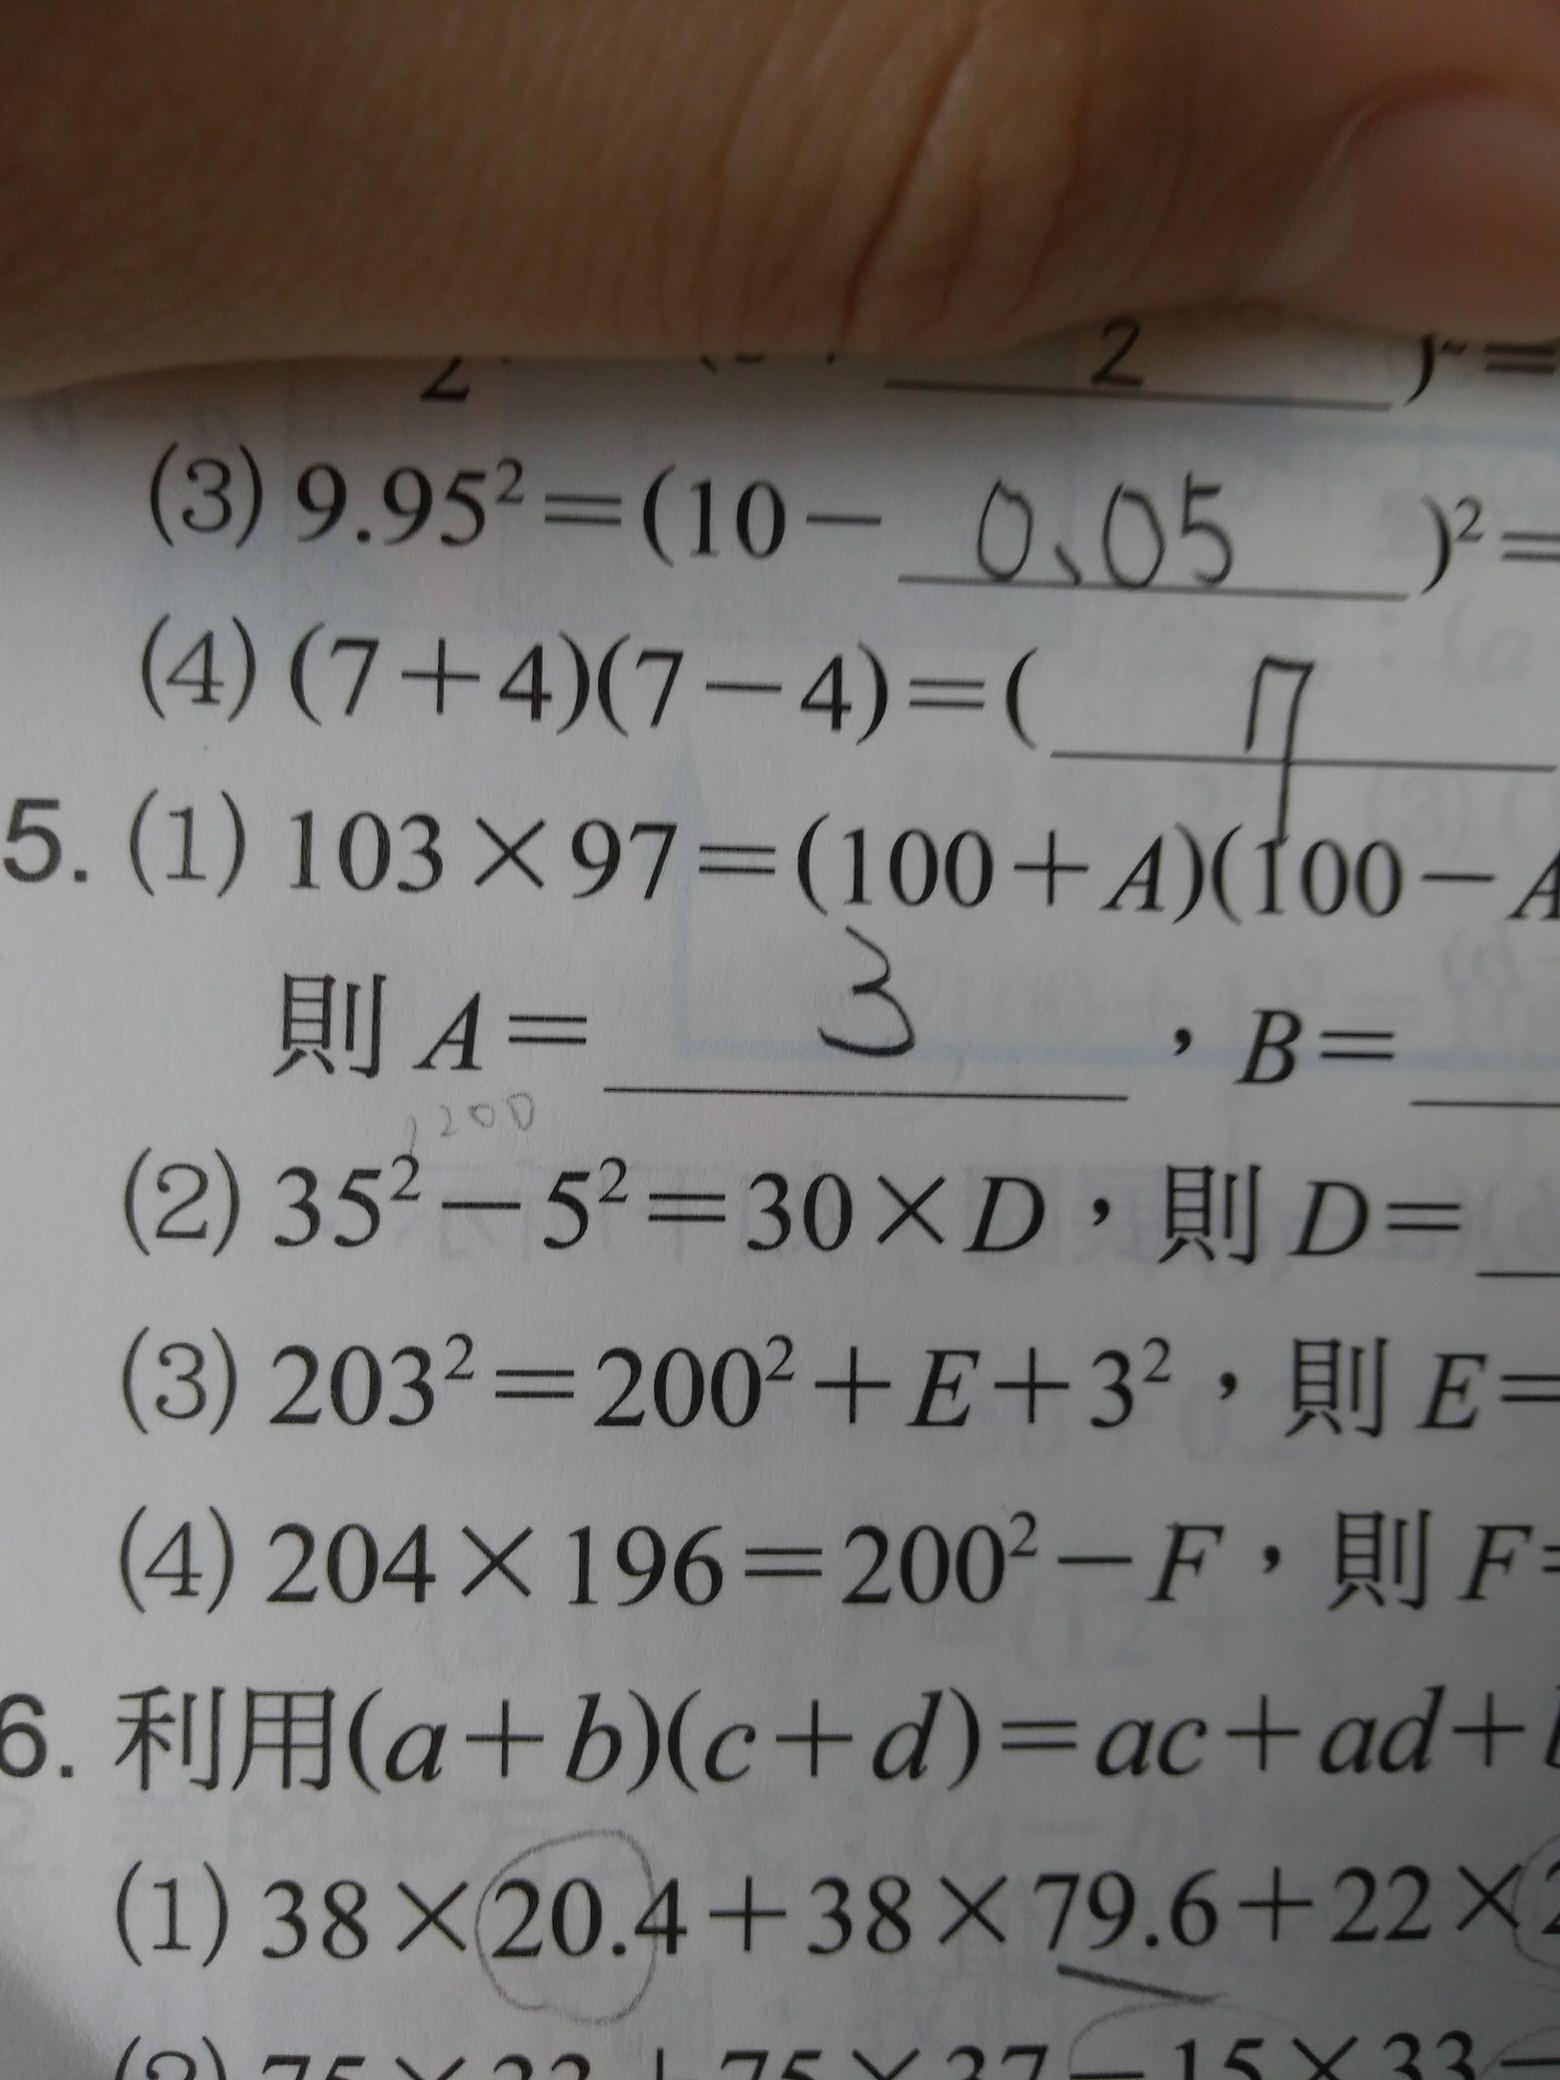 2 2 )²=
(3) 9.95²=(10− 0.05 )²=
(4) (7+4)(7−4)=( 7
5. (1) 103×97=(100+A)(100−A
則 A= 3 ，B=
1200
(2) 35²−5²=30×D，則 D=
(3) 203²=200²+E+3²，則 E=
(4) 204×196=200²−F，則 F=
6. 利用(a+b)(c+d)=ac+ad+
(1) 38×20.4+38×79.6+22×2
(2) 75×33+75×37−15×33−